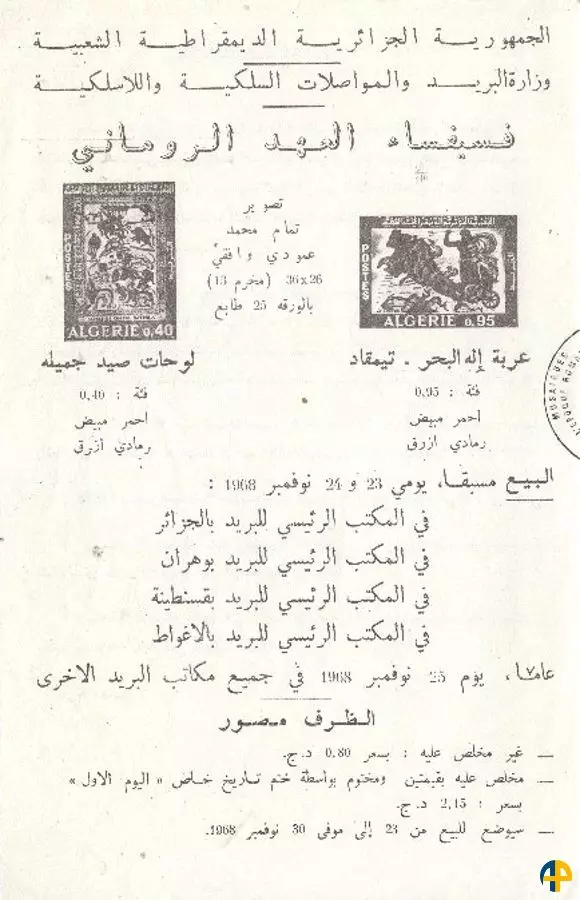 الجمهورية الجزائرية الديمقراطية الشعبية
وزارة البريد والمواصلات السلكية واللاسلكية
فسيفساء العهد الروماني
تصوير
تمام محمد
عمودي وافقي
36x26 (مخرم 13)
بالورقه 25 طابع
POSTES
ALGERIE 0,40
POSTES
ALGERIE 0,95
عربة إله البحر . تيمقاد
لوحات صيد جميله
فئة : 0,95
احمر مبيض
رمادي ازرق
فئة : 0,40
احمر مبيض
رمادي ازرق
MOSAIQUES
البيع مسبقا، يومي 23 و 24 نوفمبر 1968 :
في المكتب الرئيسي للبريد بالجزائر
في المكتب الرئيسي للبريد بوهران
في المكتب الرئيسي للبريد بقسنطينة
في المكتب الرئيسي للبريد بالاغواط
عاما، يوم 25 نوفمبر 1968 في جميع مكاتب البريد الاخرى
الظرف مصور
— غير مخلص عليه : بسعر 0,80 د.ج.
— مخلص عليه بقيمتين ومختوم بواسطة ختم تاريخ خاص « اليوم الاول »
بسعر : 2,15 د.ج.
— سيوضع للبيع من 23 إلى موفى 30 نوفمبر 1968.